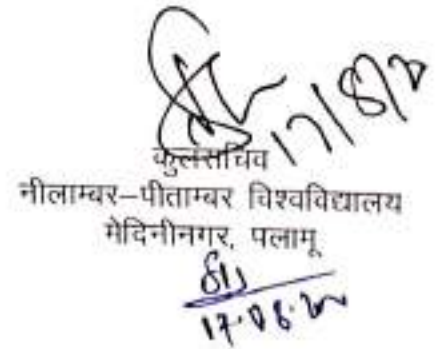 17/8/2
कुलसचिव
नीलाम्बर–पीताम्बर विश्वविद्यालय
मेदिनीनगर, पलामू
17.08.20